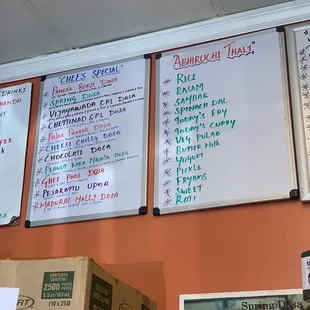 DRINKS
"CHEF'S SPECIAL"
PANEER BURJI DOSA
SPRING DOSA
VIJAYAWADA SPL DOSA
CHETTINAD SPL DOSA
PALAK PANEER DOSA
CHEESE CHILLY DOSA
CHOCOLATE DOSA
MASALA DOSA
GHEE PODI DOSA
PESARATTU UPMA
MADURAI MALLI DOSA
"ABHIRUCHI THALI"
* RICE
* RASAM
* SAMBAR
* SPINACH DAL
* TODAY'S FRY
* TODAY'S CURRY
* VEG PULAO
* BUTTER MILK
* YOGURT
* PICKLE
* FRYAMS
* SWEET
* ROTI
CONTENTS
2500
(10 x 250)
Spring Dosa